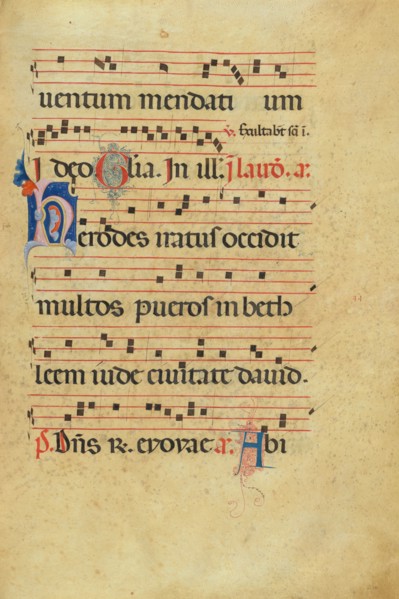 uentum mendati um
℣. Exultabt sc̄i ī.
ı deo Glia. In ill. j̄ laud̄. a.
Herodes iratus occidit
multos pueros in beth
leem iude ciuitate dauid.
p̄. Dn̄s ℟. evovae. a. Abi